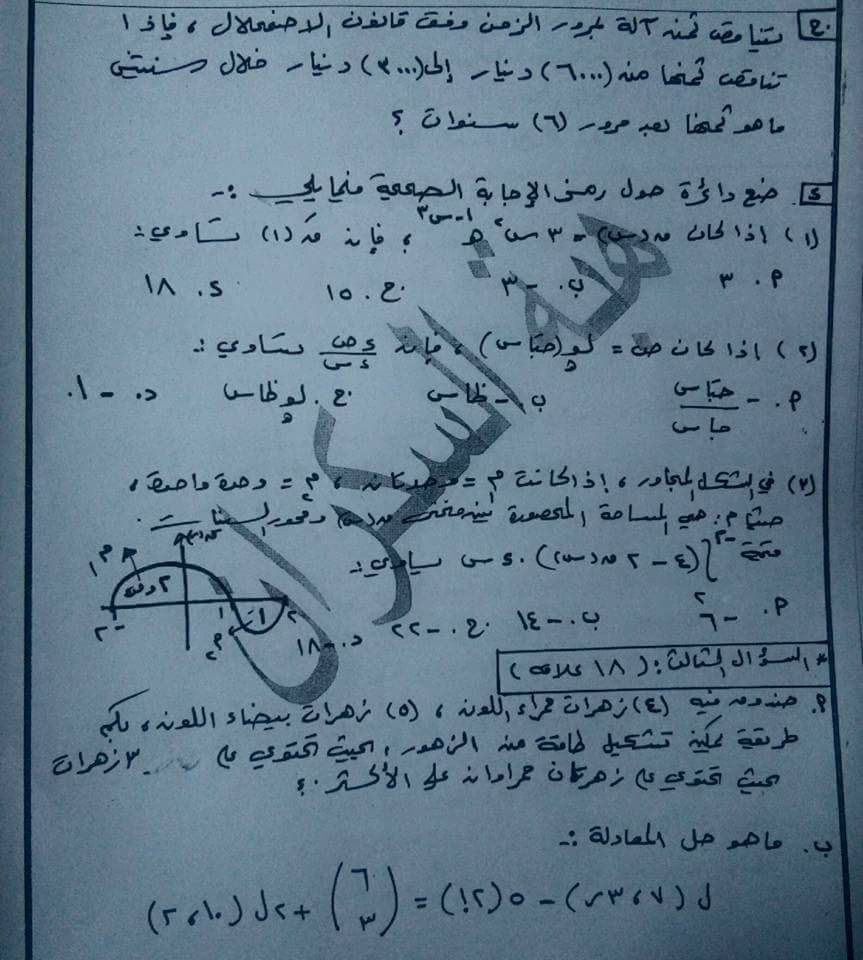 ج. يتناقص ثمن آلة بمرور الزمن وفق قانون الاضمحلال ، فإذا
تناقص ثمنها من (٦٠٠٠) دينار إلى (٣٠٠٠) دينار خلال سنتين
ما هو ثمنها بعد مرور (٦) سنوات ؟
د. ضع دائرة حول رمز الإجابة الصحيحة فيما يلي :-
(١) إذا كان ق(س) = ٣س٢ هـ ١-س٣ ، فإن قَ(١) تساوي :
م. ٣ ب. -٣ ج. ١٥ د. ١٨
(٢) إذا كان ص = لو هـ (جتاس) ، فإن ءص/ءس تساوي :
م. - جتاس/جاس ب. - ظاس ج. لو هـ ظاس د. - ١
(٣) في الشكل المجاور ، إذا كانت م١ = وحدتان ، م٢ = وحدة واحدة ،
حيث م : هي المساحة المحصورة بين منحنى ق(س) ومحور السينات
قيمة ∫ (٤ - ٢ ق(س)) . ءس يساوي :
-٢
٢
م. -٦ ب. -١٤ ج. -٢٢ د. -١٨
ق(س)
م١
٢ وحدة
-٢
١
٢
م٢
* السؤال الثالث : (١٨ علامة)
م. صندوق فيه (٤) زهرات حمراء اللون ، (٥) زهرات بيضاء اللون ، بكم
طريقة يمكن تشكيل طاقة من الزهور ، بحيث تحتوي على ٣ زهرات
بحيث تحتوي على زهرتان حمراوان على الأكثر ؟
ب. ما هو حل المعادلة :-
ل (٧ ، ٣ر) - ٥(٢!) = (٦ ٣) + ٢ل (١٠ ، ٢)
بهة السكران